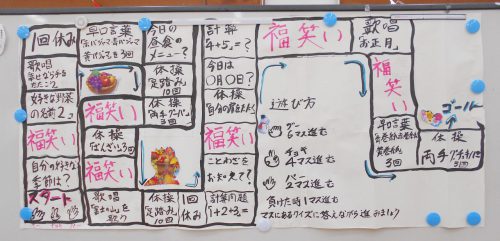 スタート
自分の好きな
季節は?
福笑い
好きな野菜
の名前2つ
歌唱
幸せなら手を
たたこう
1回休み
早口言葉
3回
今日の
昼食の
メニュー?
体操
足踏み
10回
体操
両手グーパー
福笑い
体操
ばんざい3回
福笑い
歌唱
富士の山を
歌う
体操
足踏み
10回
1回
休み
計算問題
1+2+3=?
ことわざを
体操
今日は
〇月〇日?
計算
4+5=?
福笑い
歌唱
お正月
福笑い
早口言葉
赤巻紙青巻紙
黄巻紙
3回
体操
両手グーチョキパー
ゴール
遊び方
グー
6マス進む
チョキ
4マス進む
パー
2マス進む
負けた時1マス進む
マスにあるクイズに答えながら進みましょう